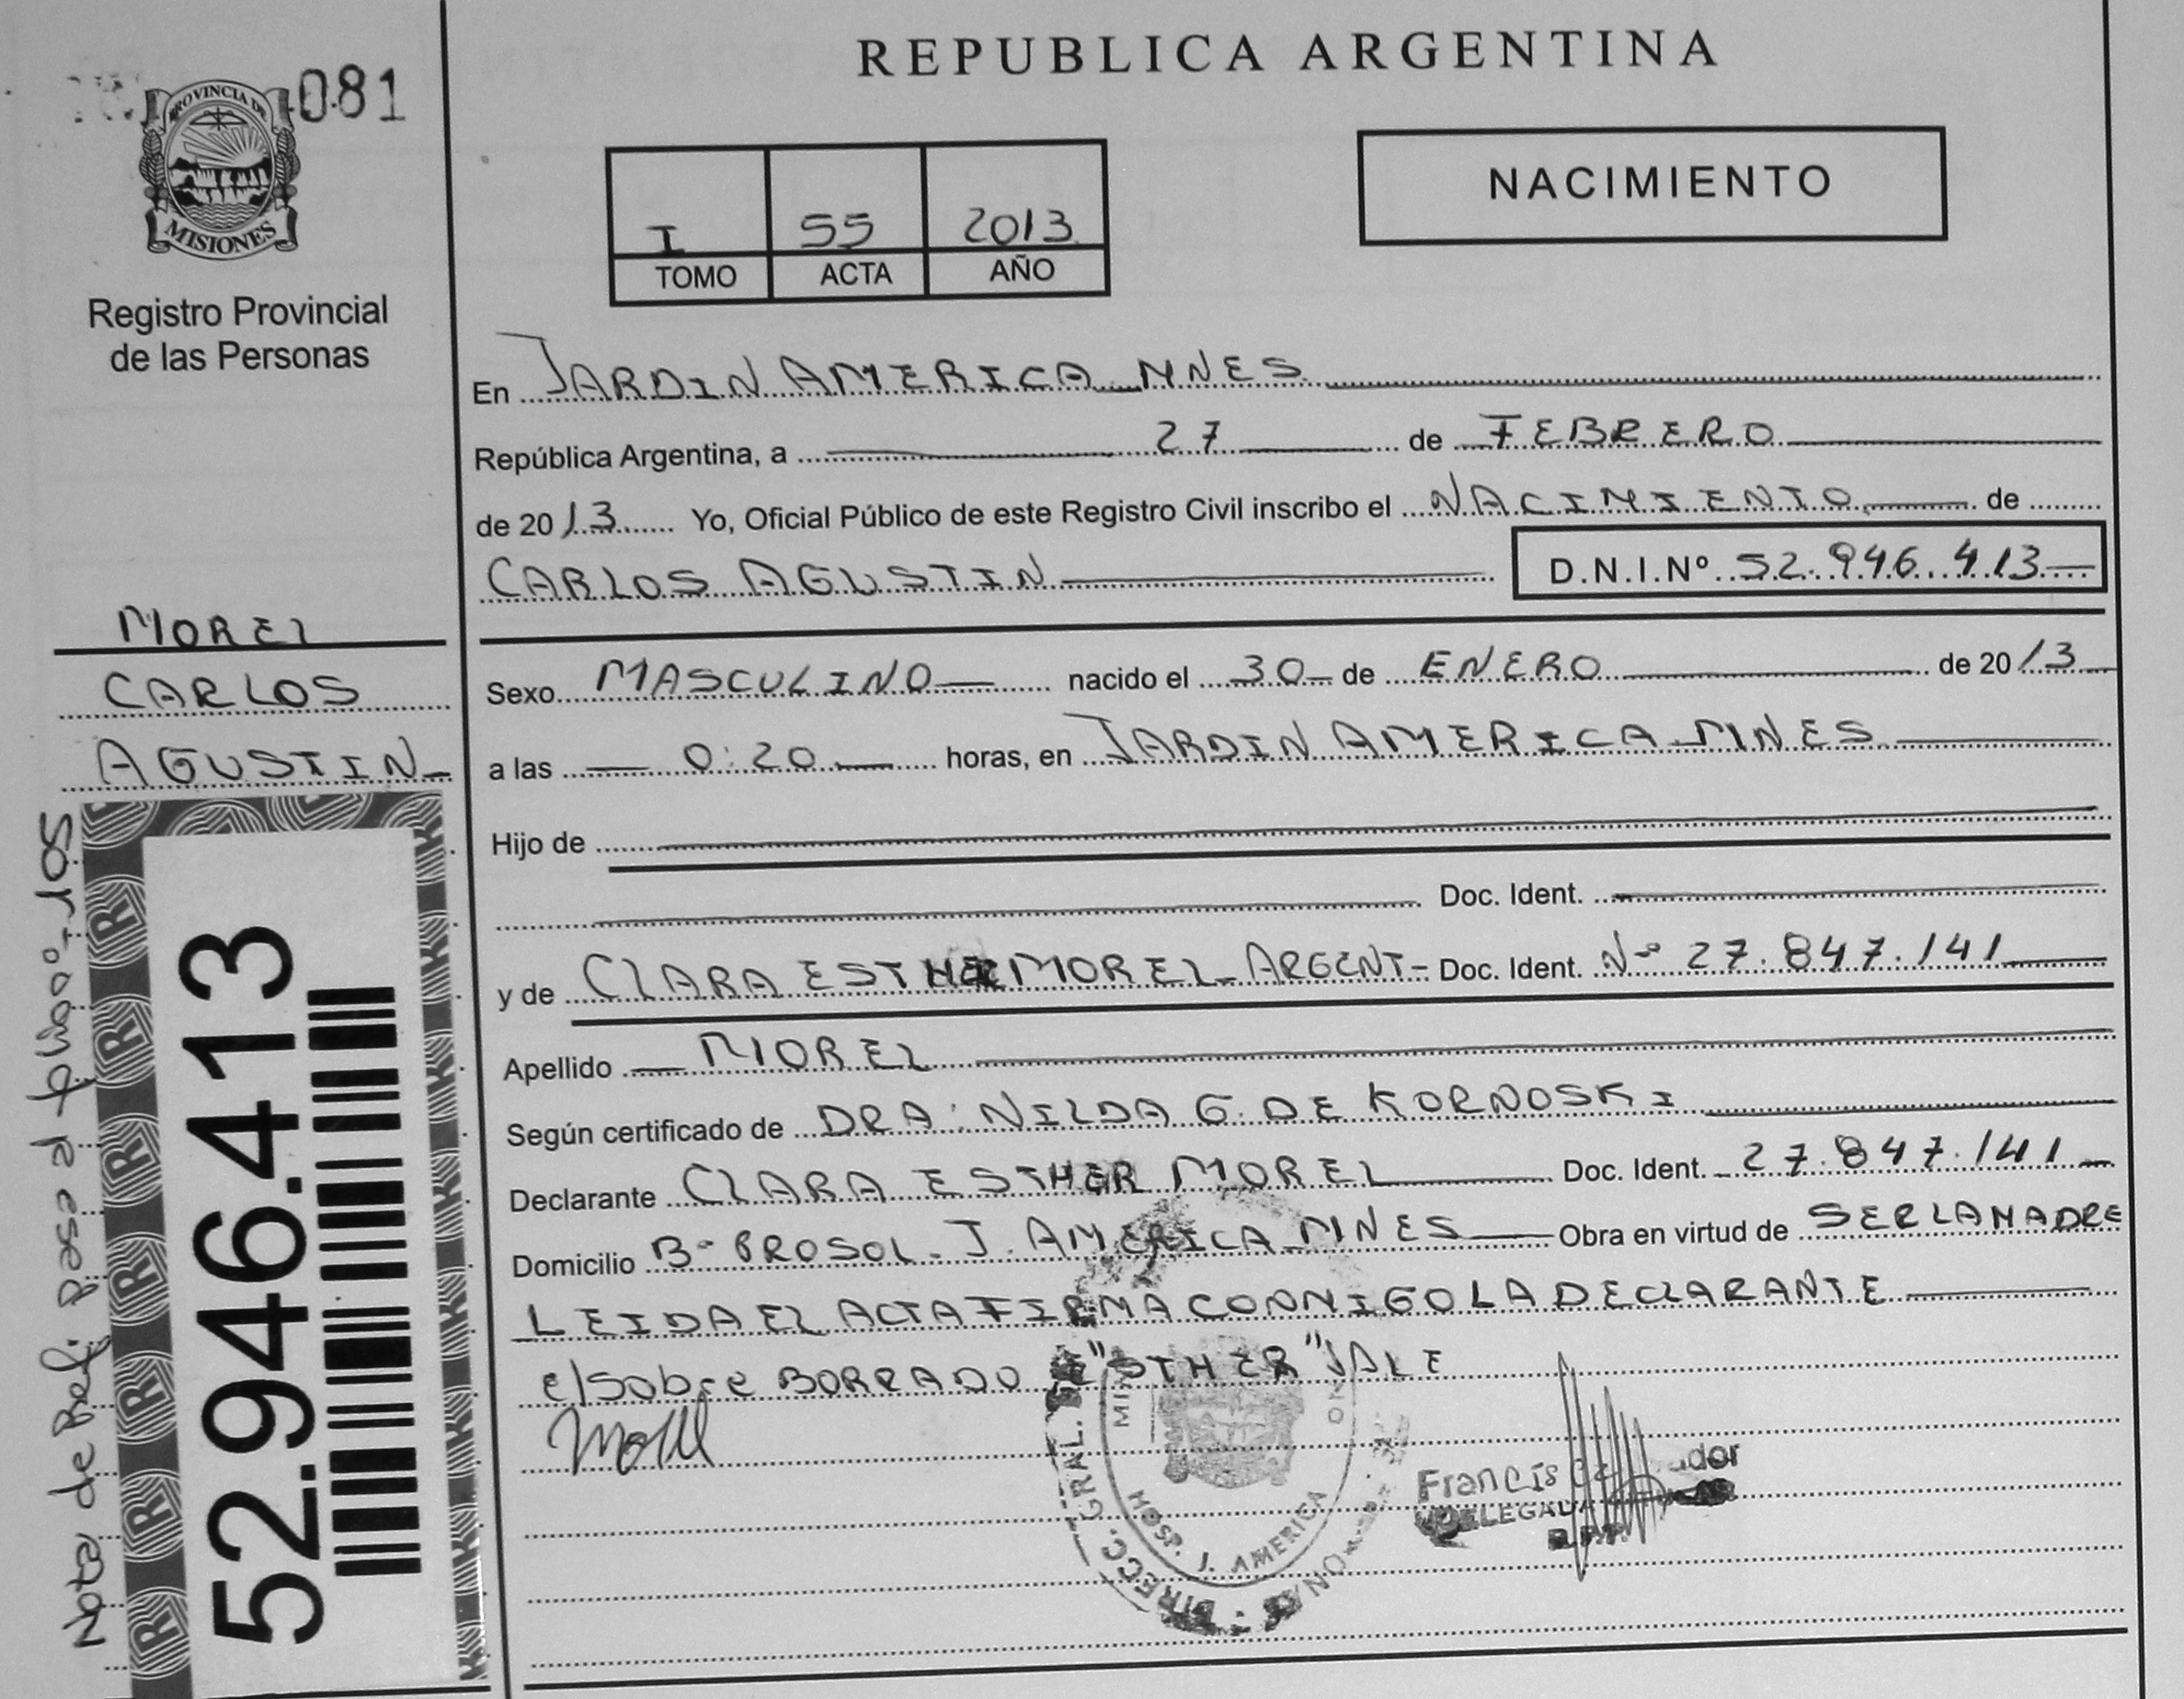 081
PROVINCIA DE
MISIONES
Registro Provincial
de las Personas
MOREL
CARLOS
AGUSTIN
Nota de Ref: Pasa al folio nº 105
52.946.413
REPUBLICA ARGENTINA
I 55 2013
TOMO ACTA AÑO
NACIMIENTO
En JARDIN AMERICA MNES
República Argentina, a 27 de FEBRERO
de 2013 Yo, Oficial Público de este Registro Civil inscribo el NACIMIENTO de
CARLOS AGUSTIN D.N.I.Nº 52.946.413
Sexo MASCULINO nacido el 30 de ENERO de 2013
a las 0:20 horas, en JARDIN AMERICA MNES
Hijo de
Doc. Ident.
y de CLARA ESTHER MOREL ARGENT- Doc. Ident. Nº 27.847.141
Apellido MOREL
Según certificado de DRA: NILDA G. DE KORNOSKI
Declarante CLARA ESTHER MOREL Doc. Ident. 27.847.141
Domicilio Bº PROSOL. J. AMERICA MNES Obra en virtud de SER LA MADRE
LEIDA EL ACTA FIRMA CONMIGO LA DECLARANTE
e/sobre BORRADO "ESTHER" VALE
DIRECC. GRAL.
HOSP. J. AMERICA